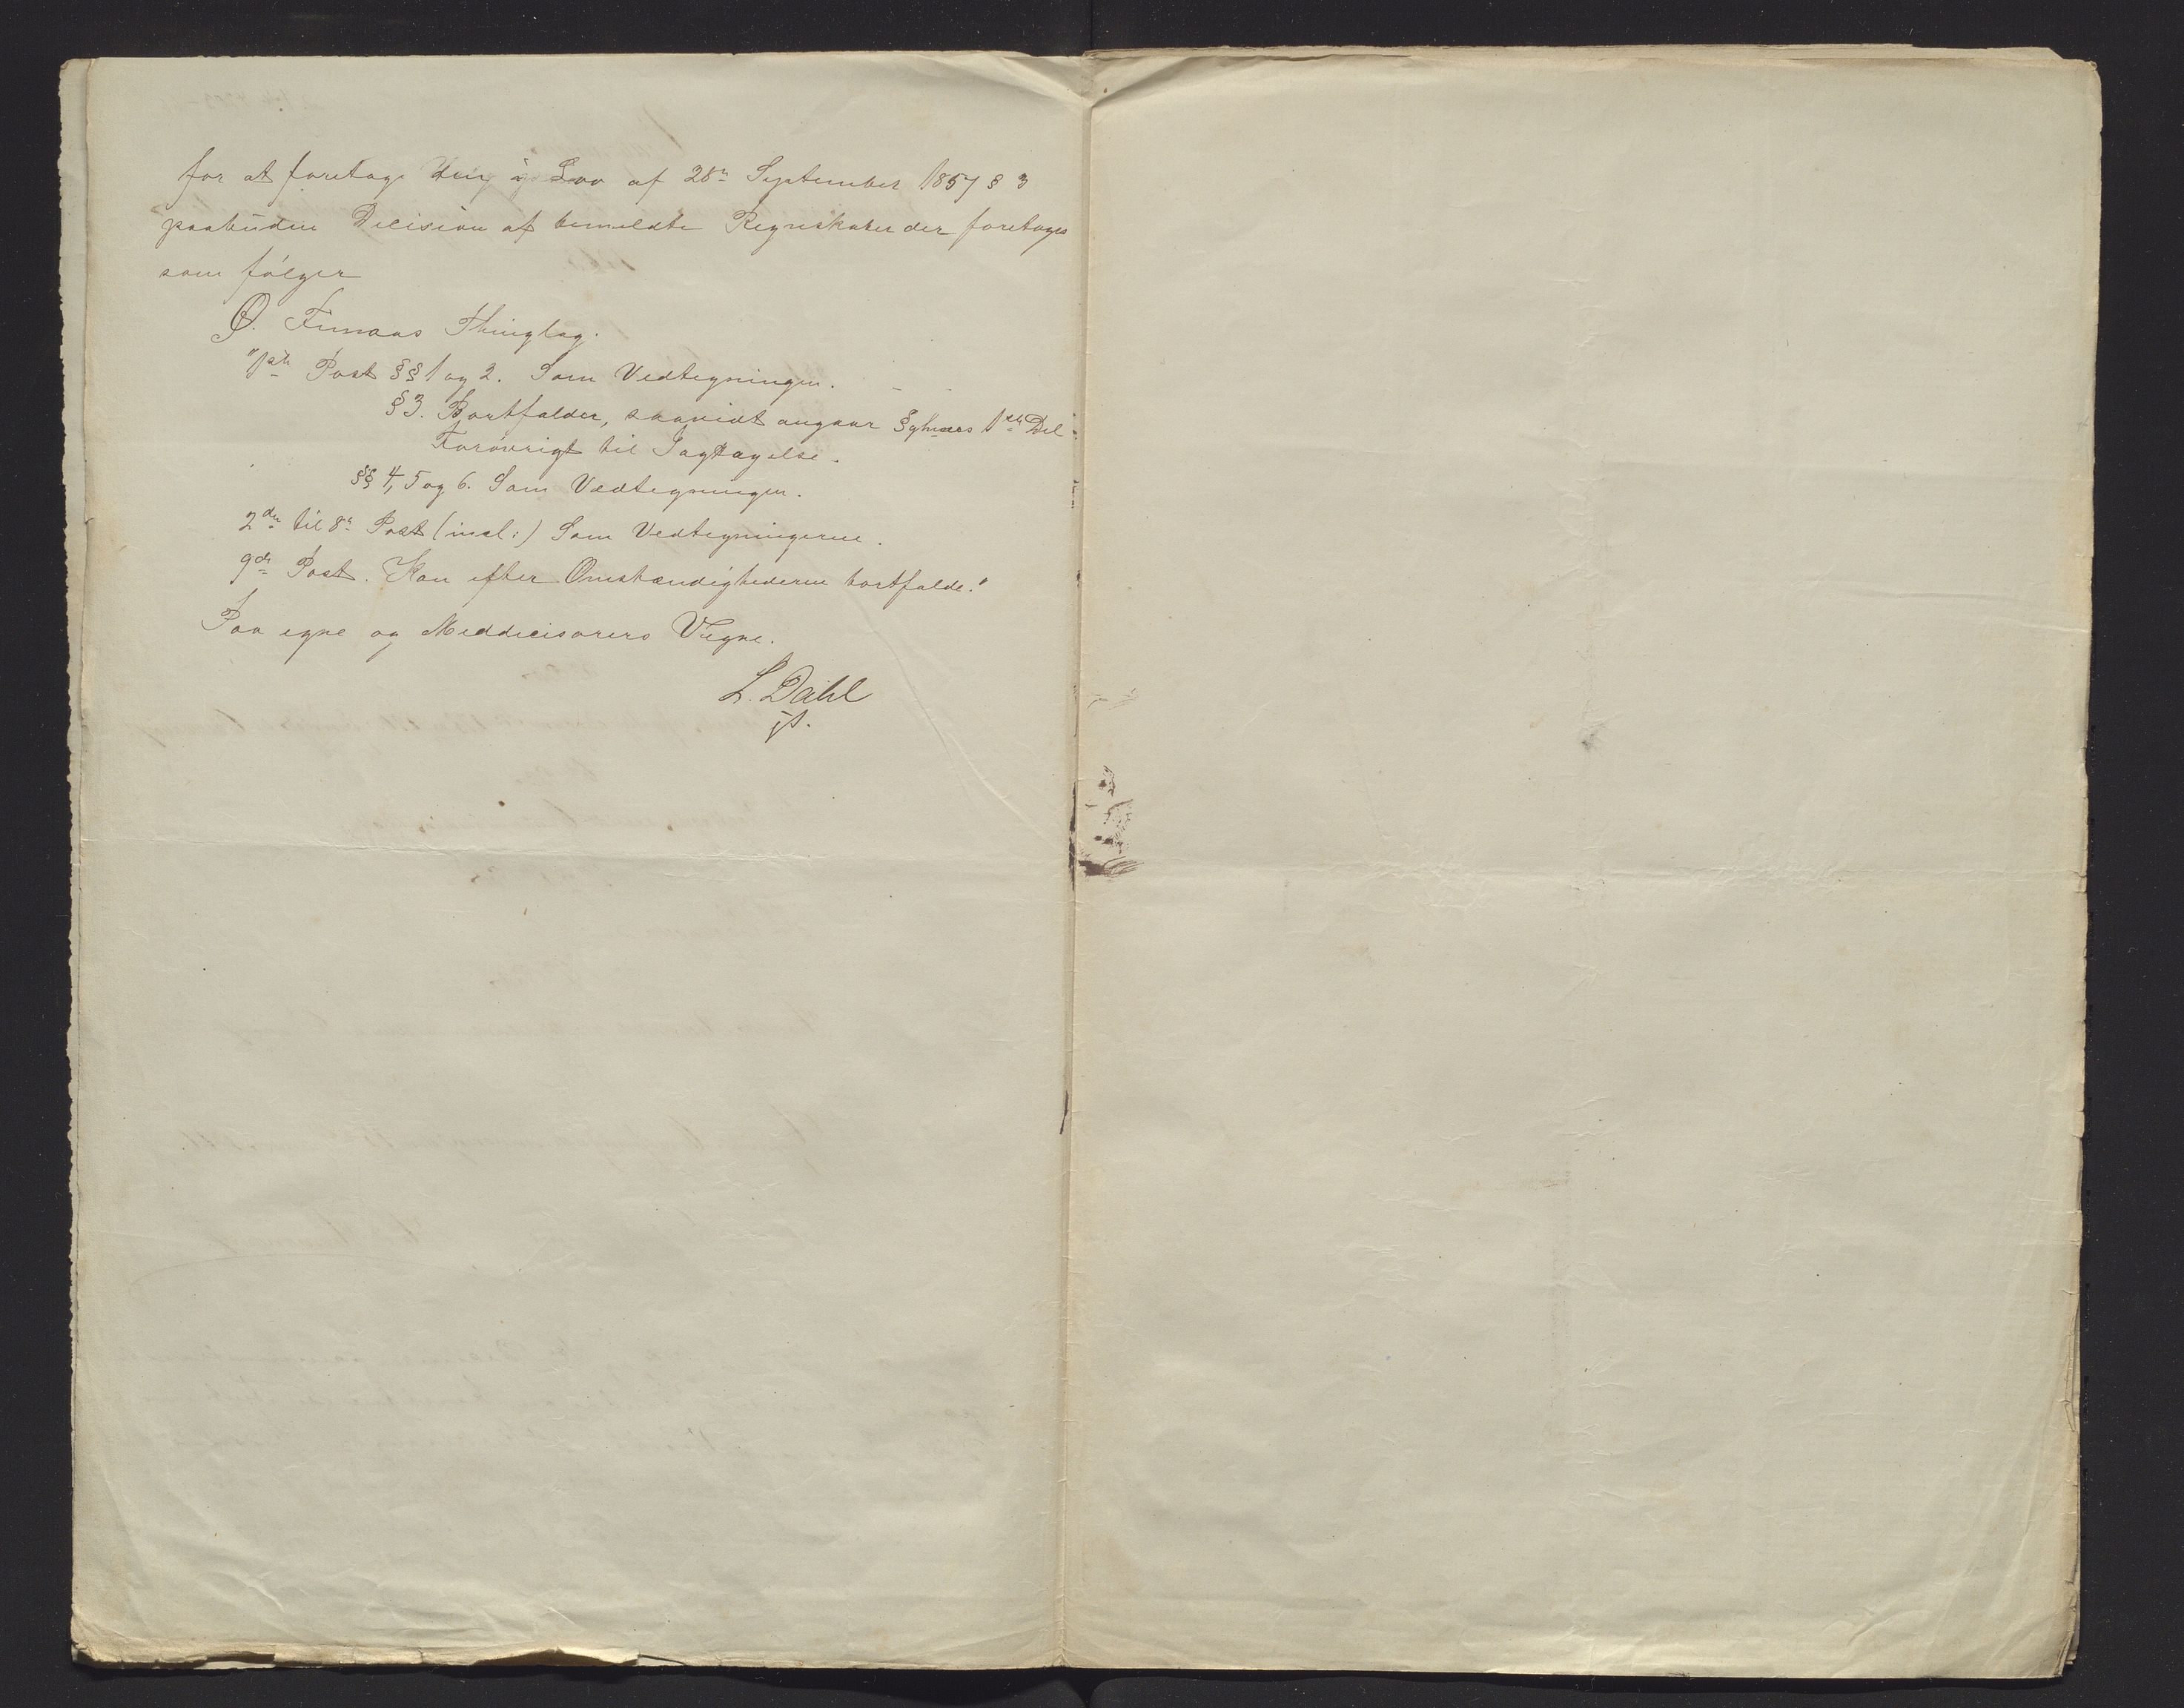 for at foretage den i Lov af 28n September 1857 § 3
paabudne Decision af bemeldte Regnskaber der foretages
som følger
O. Finnaas Thinglag.
"1ste Post §§ 1 og 2. Som Vedtegningen.
§ 3. Bortfalder, saavidt angaar §phens 1ste Del
Forøvrigt til Iagttagelse.
§§ 4, 5 og 6. Som Vedtegningen.
2den til 8e Post (incl:) Som Vedtegningerne.
9de Post. Kan efter Omstændighederne bortfalde."
Paa egne og Meddecisorers Vegne.
L. Dahl